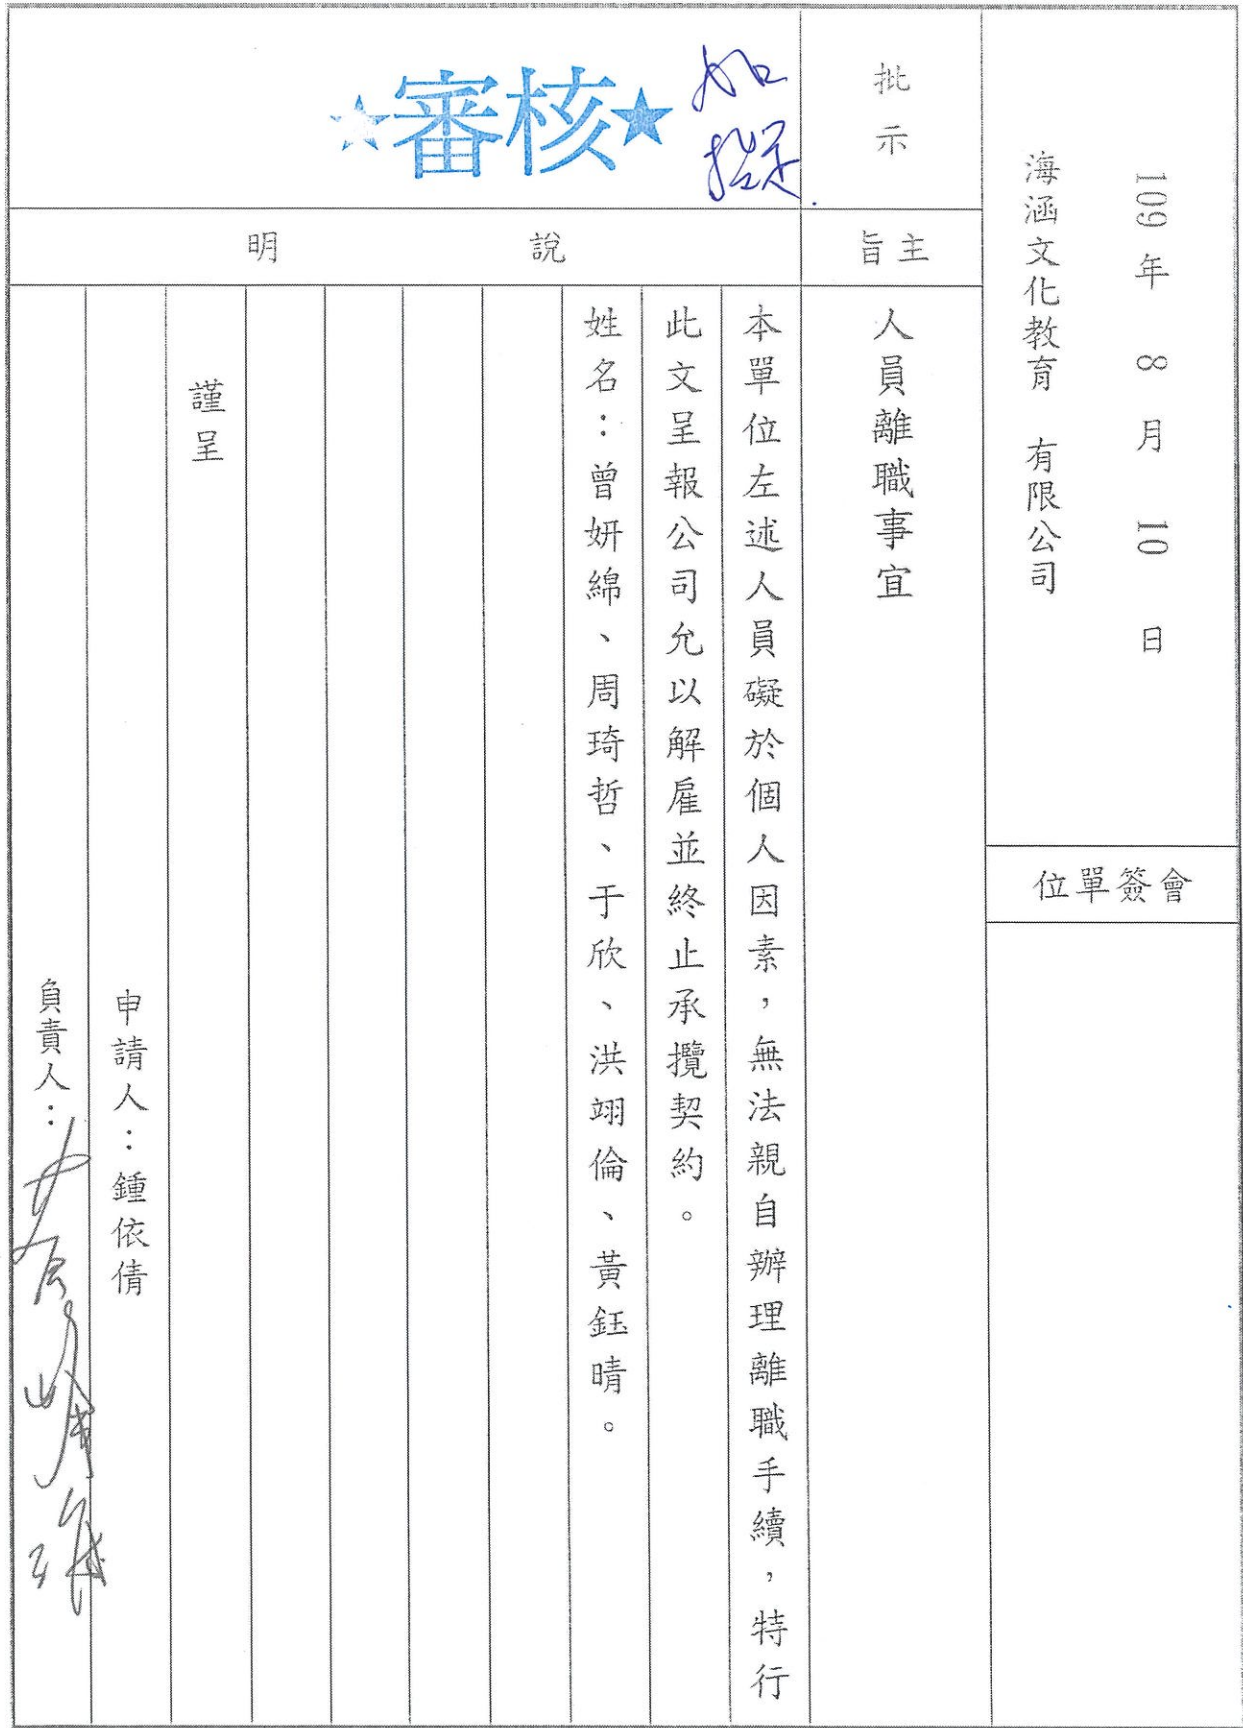 109 年 8 月 10 日
海涵文化教育 有限公司
會簽單位
批示
如擬
★審核★
主旨
人員離職事宜
說明
本單位左述人員礙於個人因素，無法親自辦理離職手續，特行
此文呈報公司允以解雇並終止承攬契約。
姓名：曾妍綿、周琦哲、于欣、洪翊倫、黃鈺晴。
謹呈
申請人：鍾依倩
負責人：